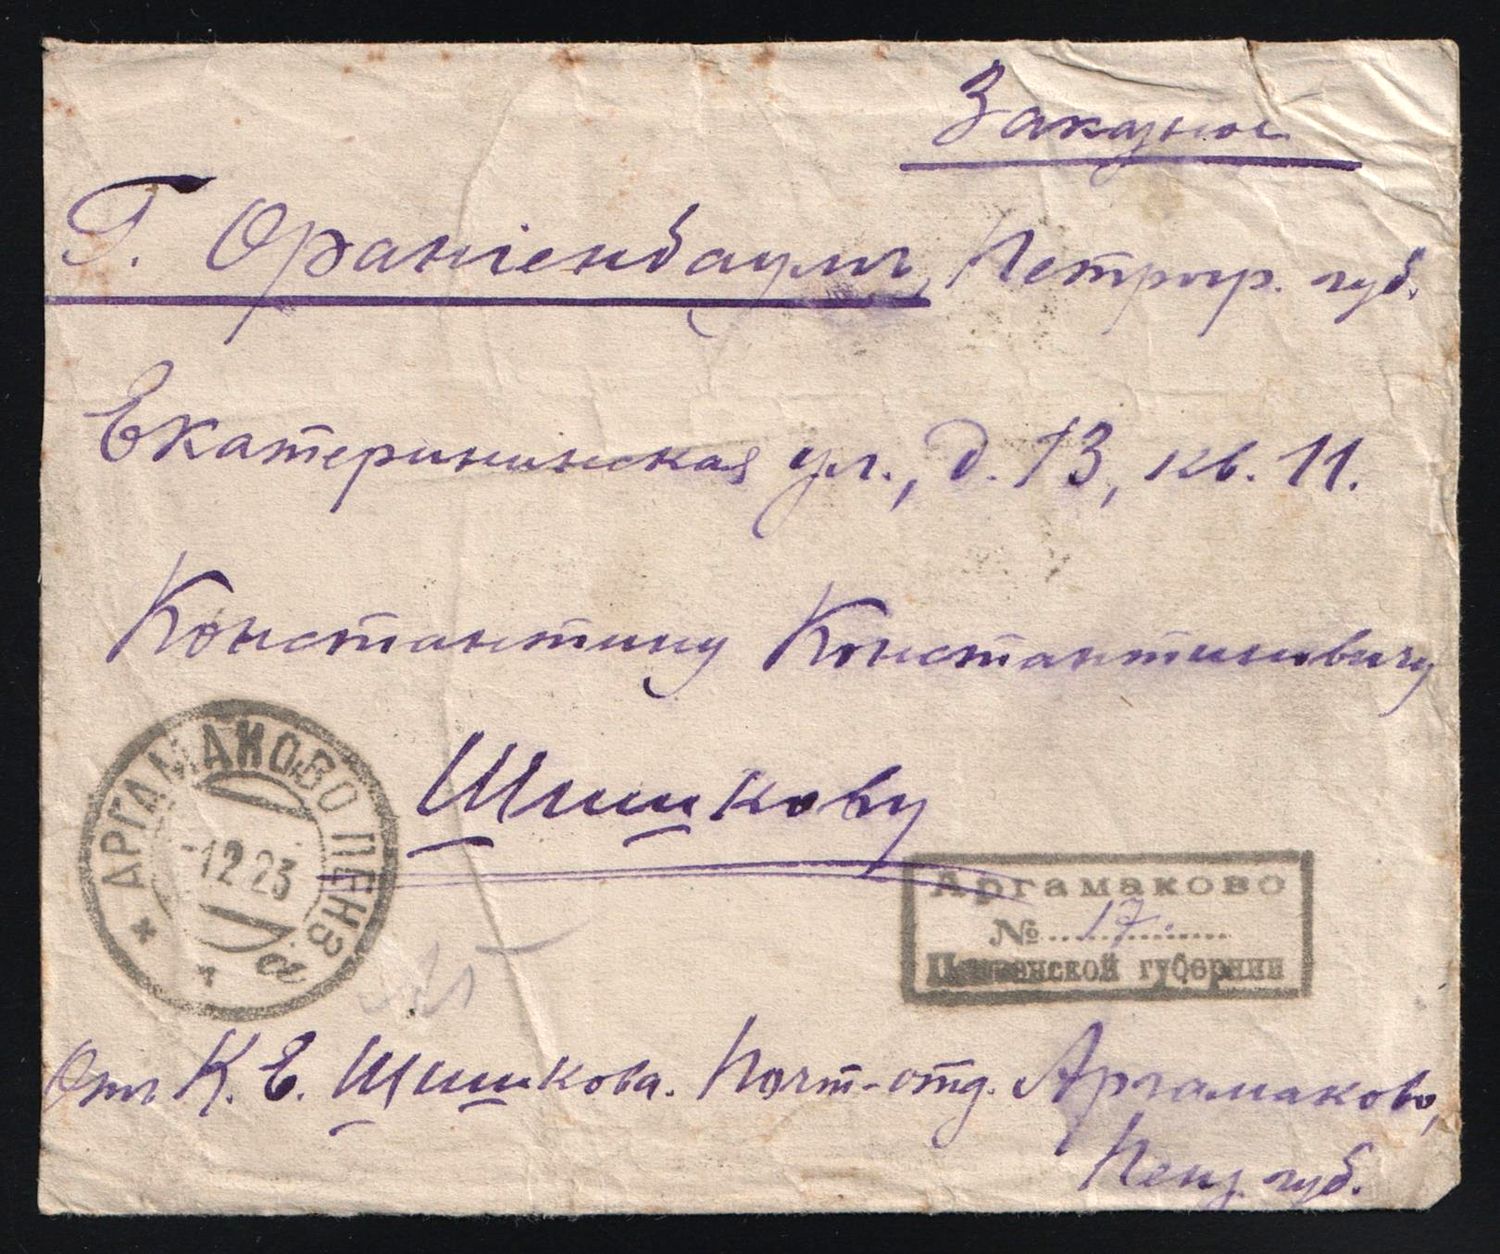 Заказное
Г. Ораніенбаумъ, Петрогр. губ.
Екатерининская ул., д. 13, кв. 11.
Константину Константиновичу
Шишкову
АРГАМАКОВО ПЕНЗ.
-1 2 23
а
Аргамаково
№ 17.
Пензенской губернии
Отъ К. Е. Шишкова. Почт-отд. Аргамаково,
Пенз. губ.